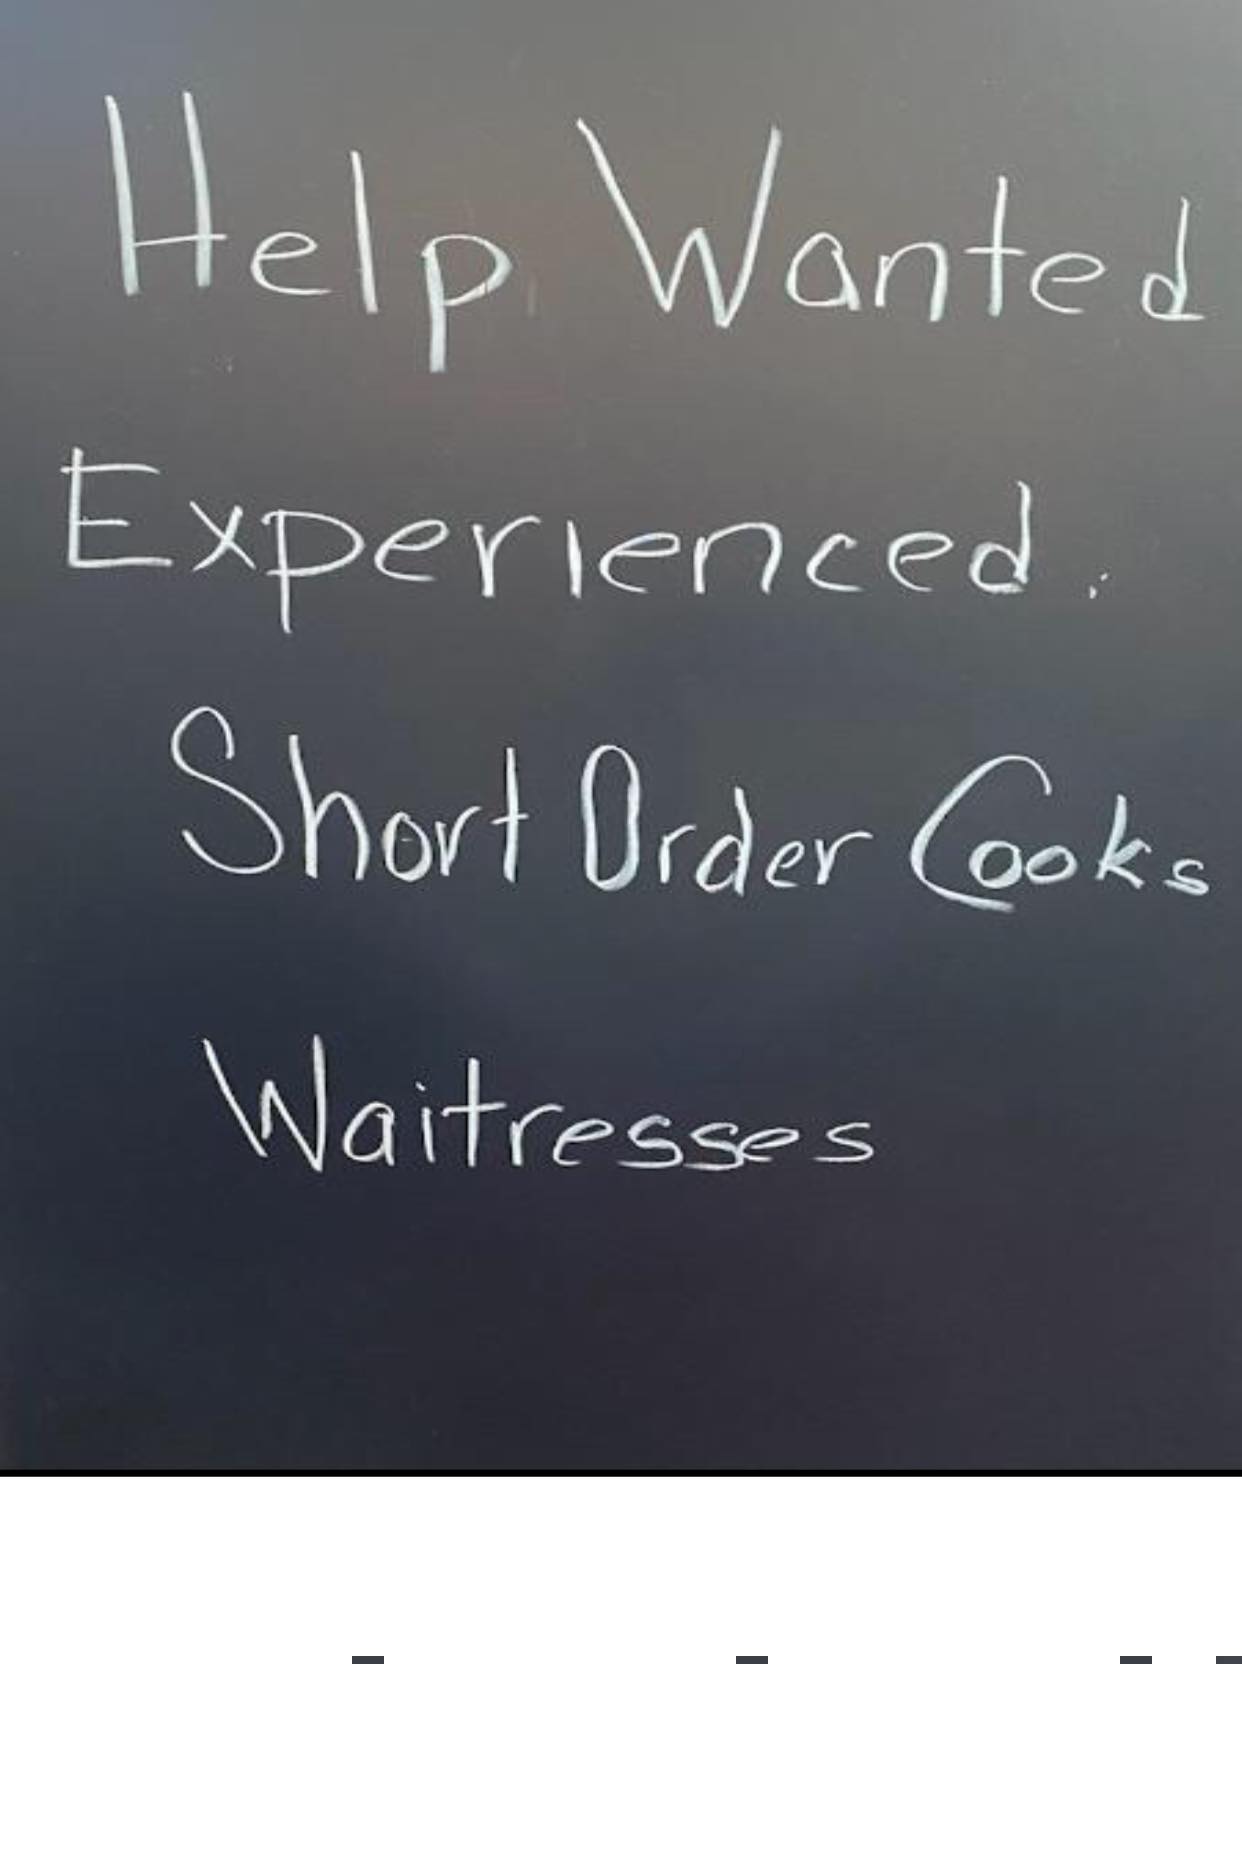 Help Wanted
Experienced:
Short Order Cooks
Waitresses